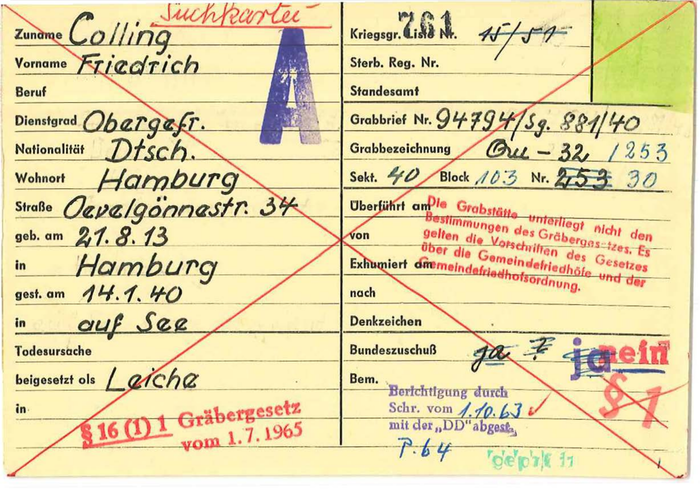 Suchkartei
Zuname Colling
Vorname Friedrich
Beruf
Dienstgrad Obergefr.
Nationalität Dtsch.
Wohnort Hamburg
Straße Oevelgönnestr. 34
geb. am 21.8.13
in Hamburg
gest. am 14.1.40
in auf See
Todesursache
beigesetzt als Leiche
in
§ 16 (1) 1 Gräbergesetz
vom 1.7.1965
A
761
Kriegsgr. Liste Nr. 15/51
Sterb. Reg. Nr.
Standesamt
Grabbrief Nr. 94794/Sg. 881/40
Grabbezeichnung Qu - 32 1253
Sekt. 40 Block 103 Nr. 253 30
Überführt am
von
Exhumiert am
nach
Die Grabstätte unterliegt nicht den
Bestimmungen des Gräbergesetzes. Es
gelten die Vorschriften des Gesetzes
über die Gemeindefriedhöfe und der
Gemeindefriedhofsordnung.
Denkzeichen
Bundeszuschuß ja ja nein
§ 1
Bem.
Berichtigung durch
Schr. vom 1.10.63
mit der „DD" abgest.
P. 64
geprüft